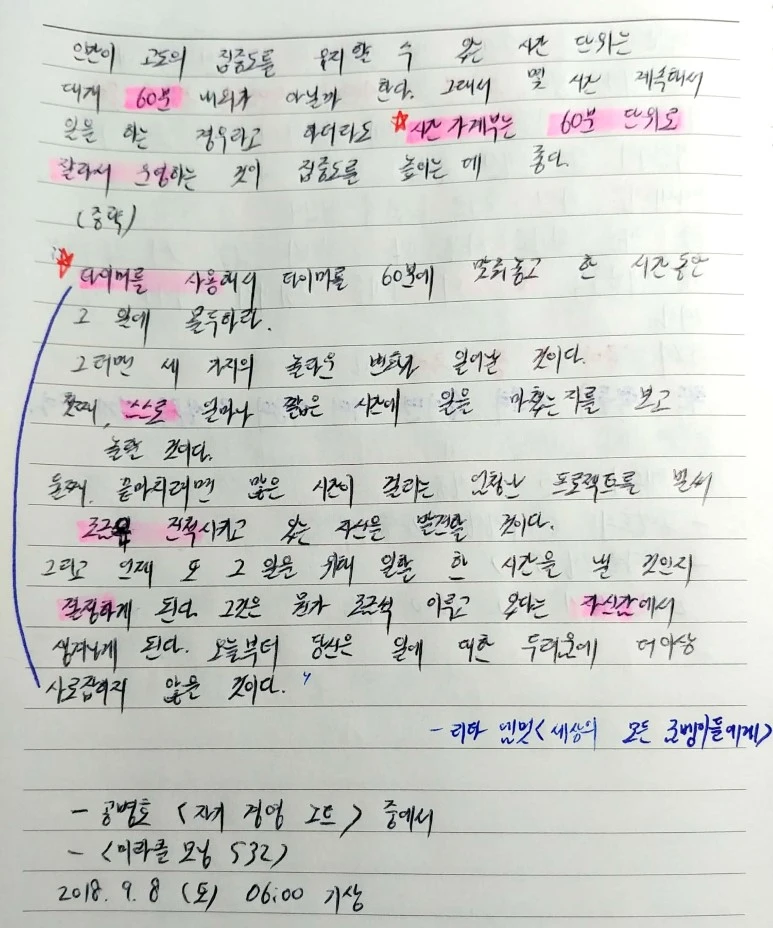 인간이 고도의 집중도를 유지할 수 있는 시간 단위는
대개 60분 내외가 아닐까 한다. 그래서 몇 시간 계속해서
일을 하는 경우라고 하더라도 ☆시간 가계부는 60분 단위로
잘라서 운영하는 것이 집중도를 높이는 데 좋다.
(중략)
☆타이머를 사용해서 타이머를 60분에 맞춰놓고 한 시간 동안
그 일에 몰두하라.
그러면 세 가지의 놀라운 변화가 일어날 것이다.
첫째, 스스로 얼마나 짧은 시간에 일을 마쳤는지를 보고
놀랄 것이다.
둘째, 끝마치려면 많은 시간이 걸리는 엄청난 프로젝트를 벌써
조금씩 진척시키고 있는 자신을 발견할 것이다.
그리고 언제 또 그 일을 위해 일할 한 시간을 낼 것인지
결정하게 된다. 그것은 뭔가 조금씩 이루고 있다는 자신감에서
생겨나게 된다. 오늘부터 당신은 일에 대한 두려움에 더이상
사로잡히지 않을 것이다. "
- 리타 엠멋 <세상의 모든 굼벵이들에게>
- 공병호 <자기 경영 노트> 중에서
- <미라클 모닝 532>
2018. 9. 8 (토) 06:00 기상